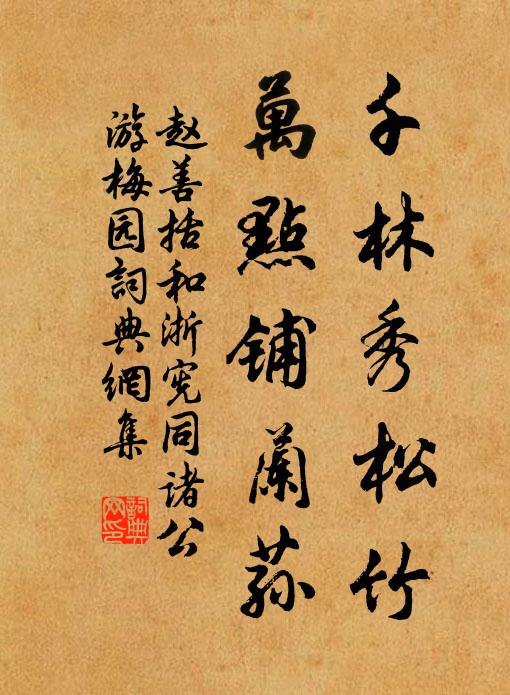 千林秀松竹
萬點铺蘭荪
赵善括和浙宪同诸公
游梅园詞典網集
詞典网印